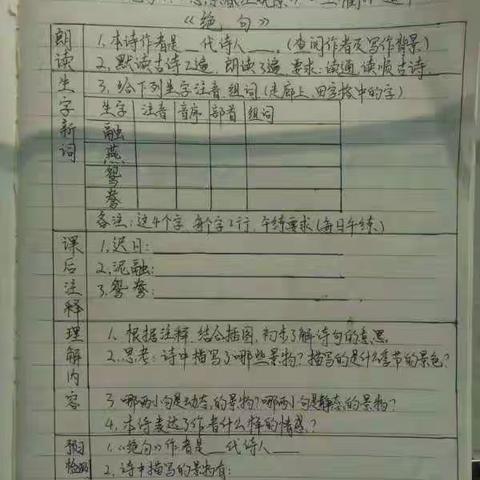 《绝句》
朗读
1. 本诗作者是__代诗人___。(查阅作者及写作背景)
2. 默读古诗2遍, 朗读3遍 要求: 读通, 读顺古诗。
生字新词
3. 给下列生字注音 组词(走廊上, 田字格中的字)
生字 注音 音序 部首 组词
融
燕
鸳
鸯
备注: 这4个字, 每个字2行, 午练要求(每日午练)
课后注释
1. 迟日:
2. 泥融:
3. 鸳鸯:
理解内容
1. 根据注释, 结合插图, 初步了解诗句的意思
2. 思考: 诗中描写了哪些景物? 描写的是什么季节的景色?
3. 哪两小句是动态的景物? 哪两小句是静态的景物?
4. 本诗表达了作者什么样的情感?
预习检测
1. 《绝句》作者是__代诗人___
2. 诗中描写的景物有: